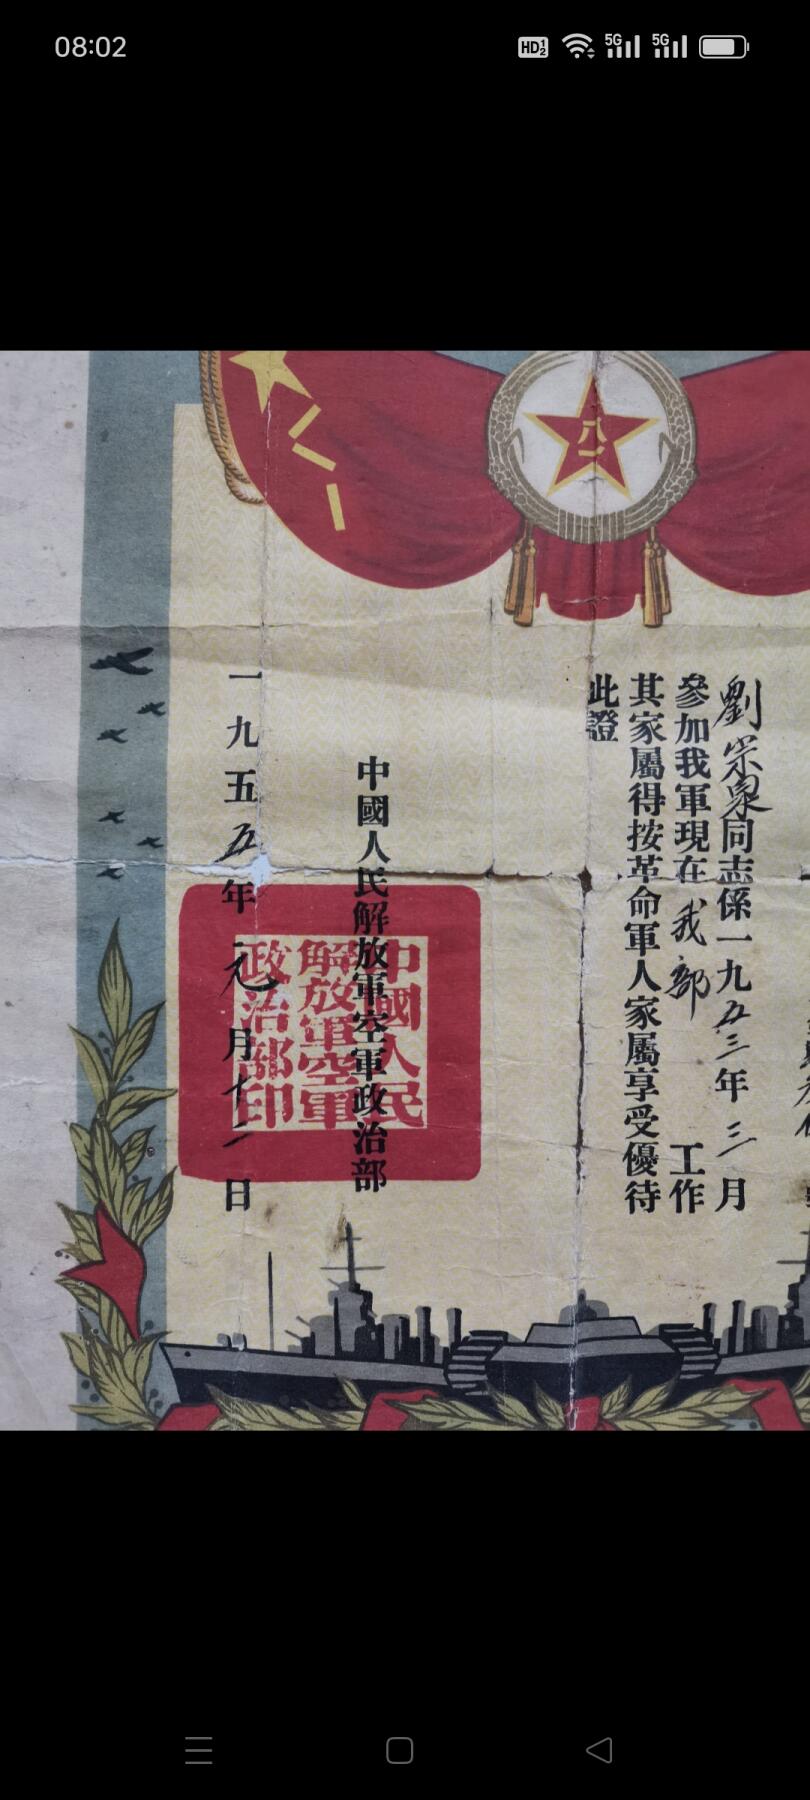 08:02
HD 1 2
5G
5G
八一
劉宗泉同志係一九五三年三月
參加我軍現在我部工作
其家屬得按革命軍人家屬享受優待
此證
中國人民解放軍空軍政治部
中國人民
解放軍空軍
政治部印
一九五五年元月十二日